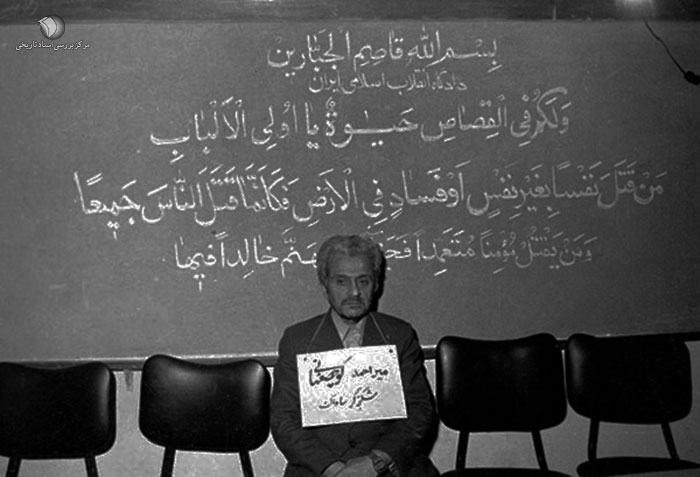 مرکز بررسی اسناد تاریخی
بِسْمِ اللّٰهِ قاصِمِ الْجَبّارین
دادگاه انقلاب اسلامی ایران
وَلَکُمْ فِی الْقِصَاصِ حَیٰوةٌ یا اُولِی الْاَلْبابِ
مَنْ قَتَلَ نَفْساً بِغَیْرِ نَفْسٍ اَوْ فَسَادٍ فِی الْاَرْضِ فَکَاَنَّمَا قَتَلَ النّاسَ جَمیعاً
وَمَنْ یَقْتُلْ مُؤْمِناً مُتَعَمِّداً هَنَّمُ خالِداً فیها
میراحمد
شکنجه گر ساواک